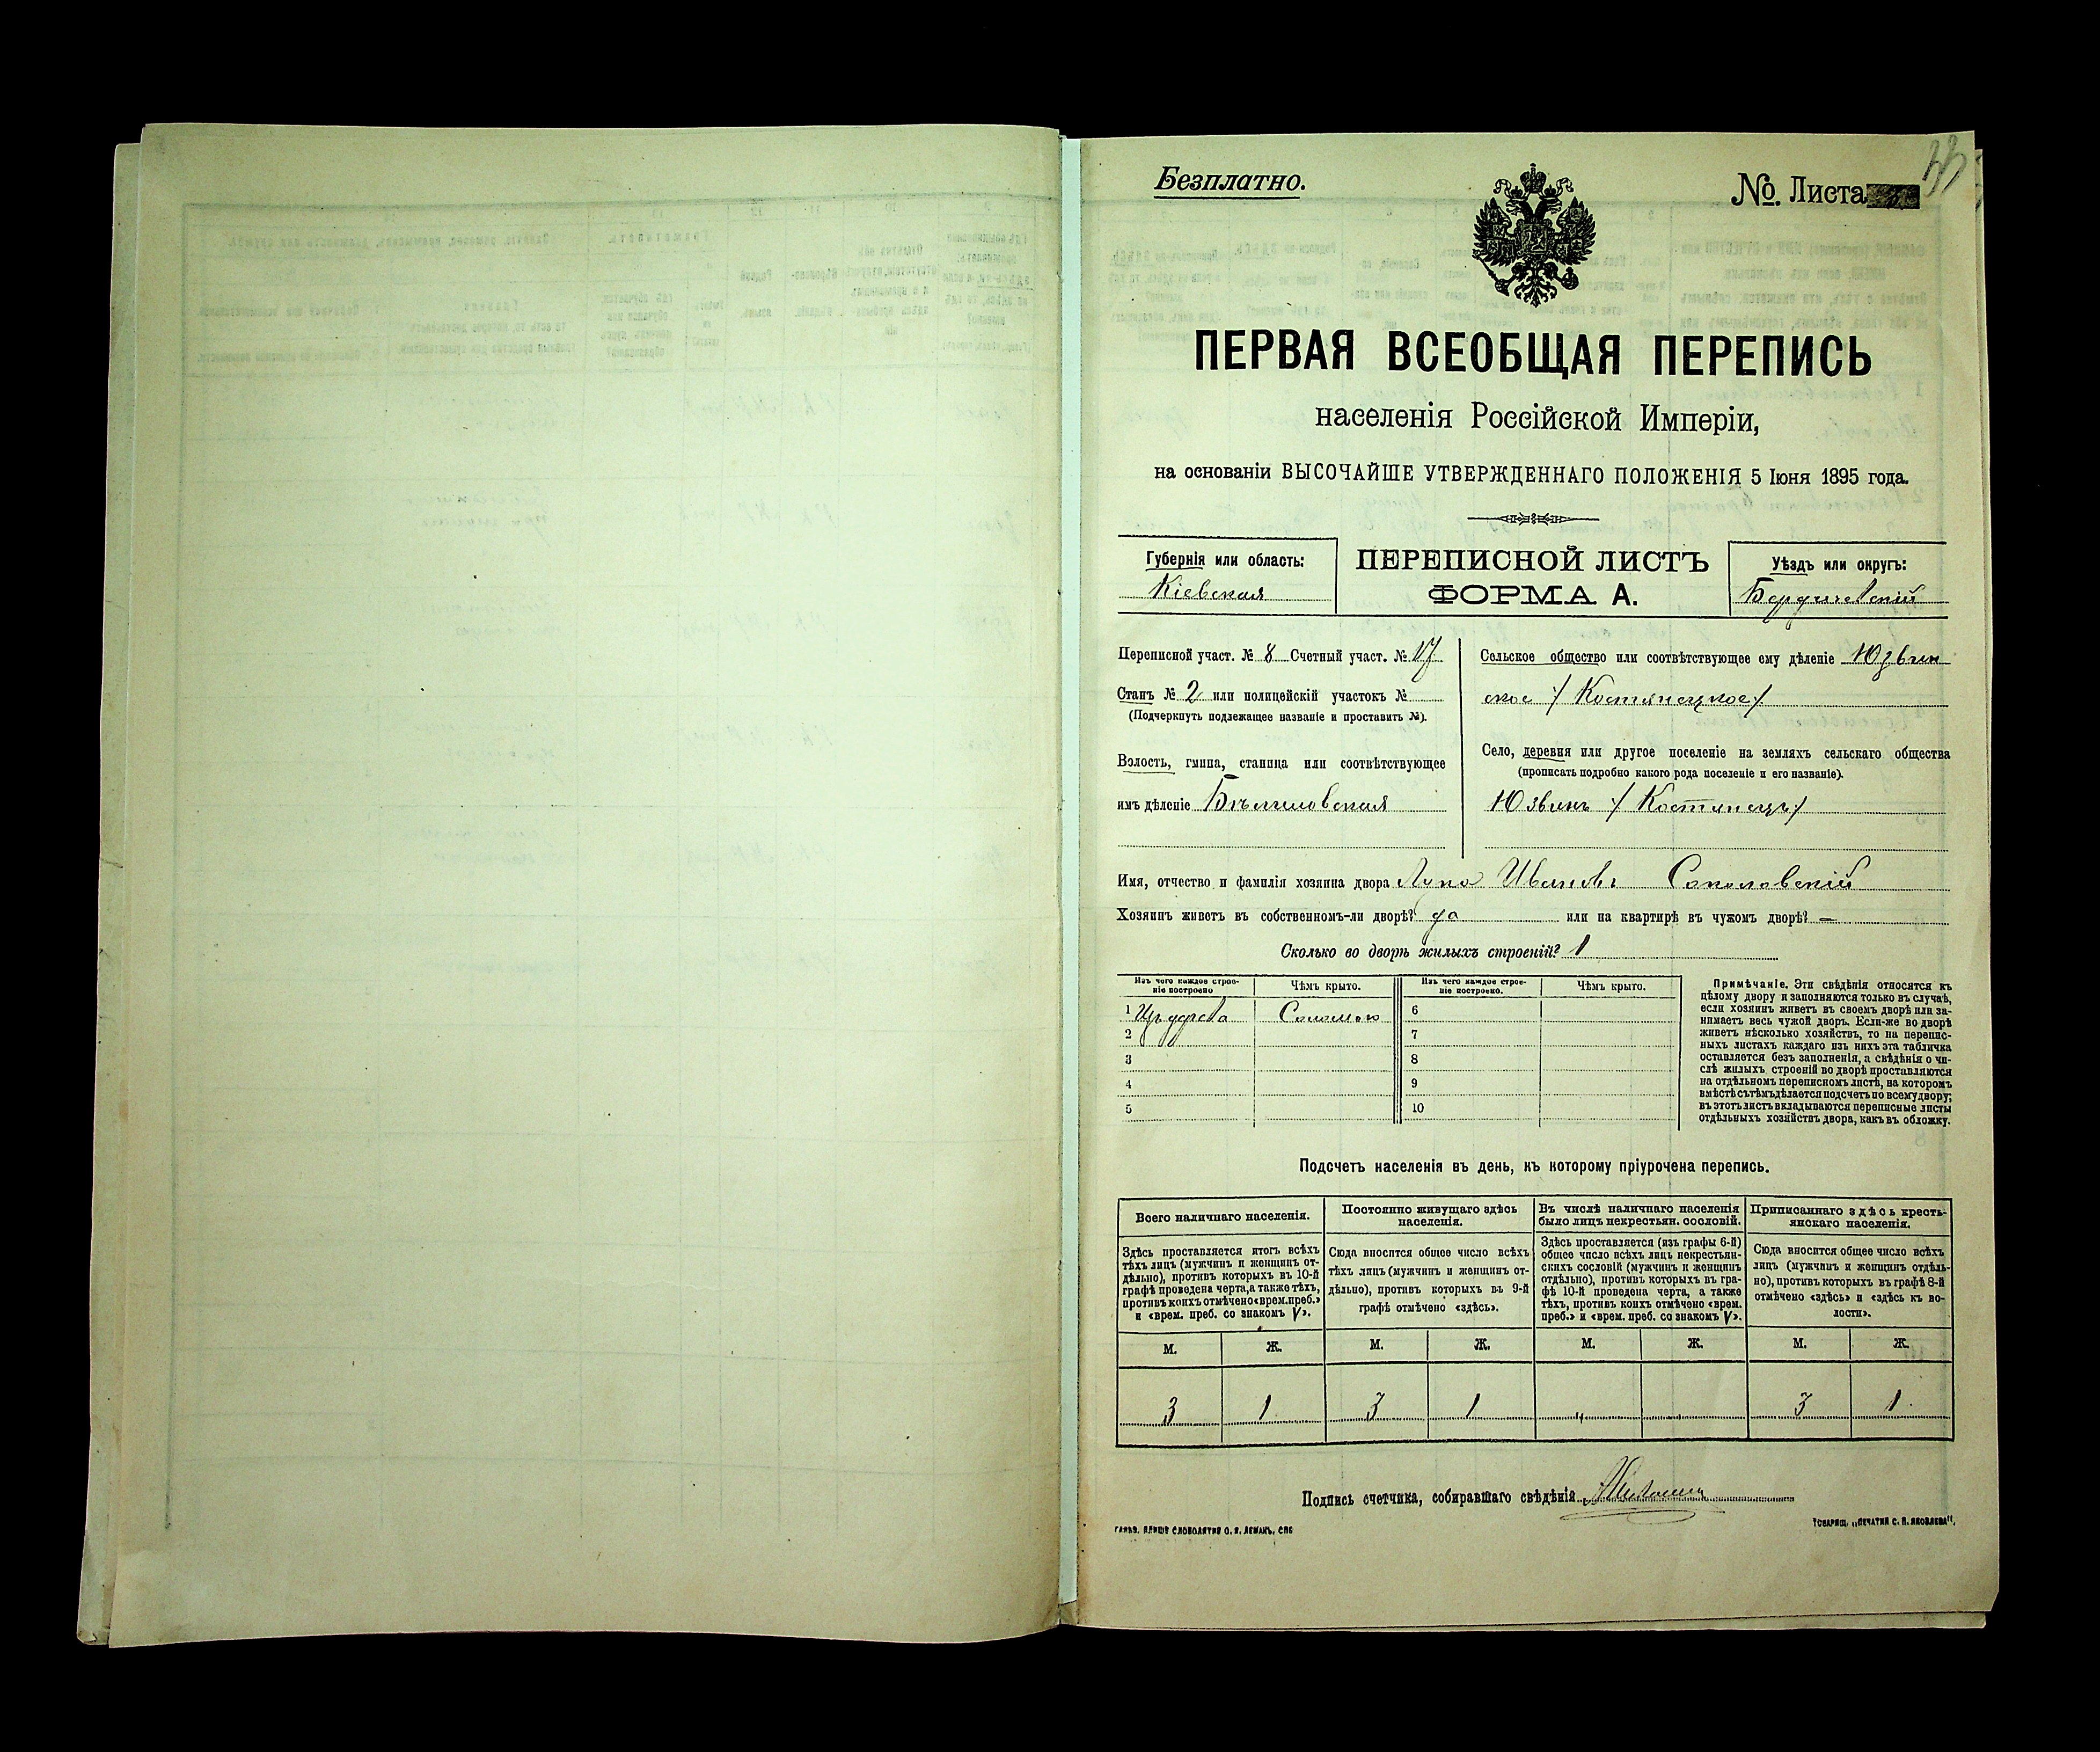 Безплатно.
№. Листа
ПЕРВАЯ ВСЕОБЩАЯ ПЕРЕПИСЬ
населенія Россійской Имперіи,
на основаніи ВЫСОЧАЙШЕ УТВЕРЖДЕННАГО ПОЛОЖЕНІЯ 5 Іюня 1895 года.
Губернія или область:
Кіевская
ПЕРЕПИСНОЙ ЛИСТЪ
ФОРМА А.
Уѣздъ или округъ:
Бердичевскій
Переписной участ. № 8 Счетный участ. № 17
Станъ № 2 или полицейскій участокъ №
(Подчеркнуть подлежащее названіе и проставить №).
Волость, гмина, станица или соотвѣтствующее
имъ дѣленіе Бѣлиловская
Сельское общество или соотвѣтствующее ему дѣленіе Юзвин
ское /Костянецкое/
Село, деревня или другое поселеніе на земляхъ сельскаго общества
(прописать подробно какого рода поселеніе и его названіе).
Юзвинъ /Костянецъ/
Имя, отчество и фамилія хозяина двора Лука Ивановъ Соколовскій
Хозяинъ живетъ въ собственномъ-ли дворѣ? да или на квартирѣ въ чужомъ дворѣ? —
Сколько во дворѣ жилыхъ строеній? 1
Изъ чего каждое строе-
ніе построено
Чѣмъ крыто.
Изъ чего каждое строе-
ніе построено.
Чѣмъ крыто.
1 Изъ дерева Соломою 6
2 7
3 8
4 9
5 10
Примѣчаніе. Эти свѣдѣнія относятся къ
цѣлому двору и заполняются только въ случаѣ,
если хозяинъ живетъ въ своемъ дворѣ или за-
нимаетъ весь чужой дворъ. Если-же во дворѣ
живетъ нѣсколько хозяйствъ, то на перепис-
ныхъ листахъ каждаго изъ нихъ эта табличка
оставляется безъ заполненія, а свѣдѣнія о чи-
слѣ жилыхъ строеній во дворѣ проставляются
на отдѣльномъ переписномъ листѣ, на которомъ
вмѣстѣ съ тѣмъ дѣлается подсчетъ по всему двору;
въ этотъ листъ вкладываются переписные листы
отдѣльныхъ хозяйствъ двора, какъ въ обложку.
Подсчетъ населенія въ день, къ которому пріурочена перепись.
Всего наличнаго населенія.
Здѣсь проставляется итогъ всѣхъ
тѣхъ лицъ (мужчинъ и женщинъ от-
дѣльно), противъ которыхъ въ 10-й
графѣ проведена черта, а также тѣхъ,
противъ коихъ отмѣчено «врем. преб.»
и «врем. преб. со знакомъ V».
Постоянно живущаго здѣсь
населенія.
Сюда вносится общее число всѣхъ
тѣхъ лицъ (мужчинъ и женщинъ от-
дѣльно), противъ которыхъ въ 9-й
графѣ отмѣчено «здѣсь».
Въ числѣ наличнаго населенія
было лицъ некрестьян. сословій.
Здѣсь проставляется (изъ графы 6-й)
общее число всѣхъ лицъ некрестьян-
скихъ сословій (мужчинъ и женщинъ
отдѣльно), противъ которыхъ въ гра-
фѣ 10-й проведена черта, а также
тѣхъ, противъ коихъ отмѣчено «врем.
преб.» и «врем. преб. со знакомъ V».
Приписаннаго здѣсь кресть-
янскаго населенія.
Сюда вносится общее число всѣхъ
лицъ (мужчинъ и женщинъ отдѣль-
но), противъ которыхъ въ графѣ 8-й
отмѣчено «здѣсь» и «здѣсь къ во-
лости».
М. Ж. М. Ж. М. Ж. М. Ж.
3 1 3 1 „ „ 3 1
Подпись счетчика, собиравшаго свѣдѣнія
ТОВАРИЩ. „ПЕЧАТНЯ С. П. ЯКОВЛЕВА".